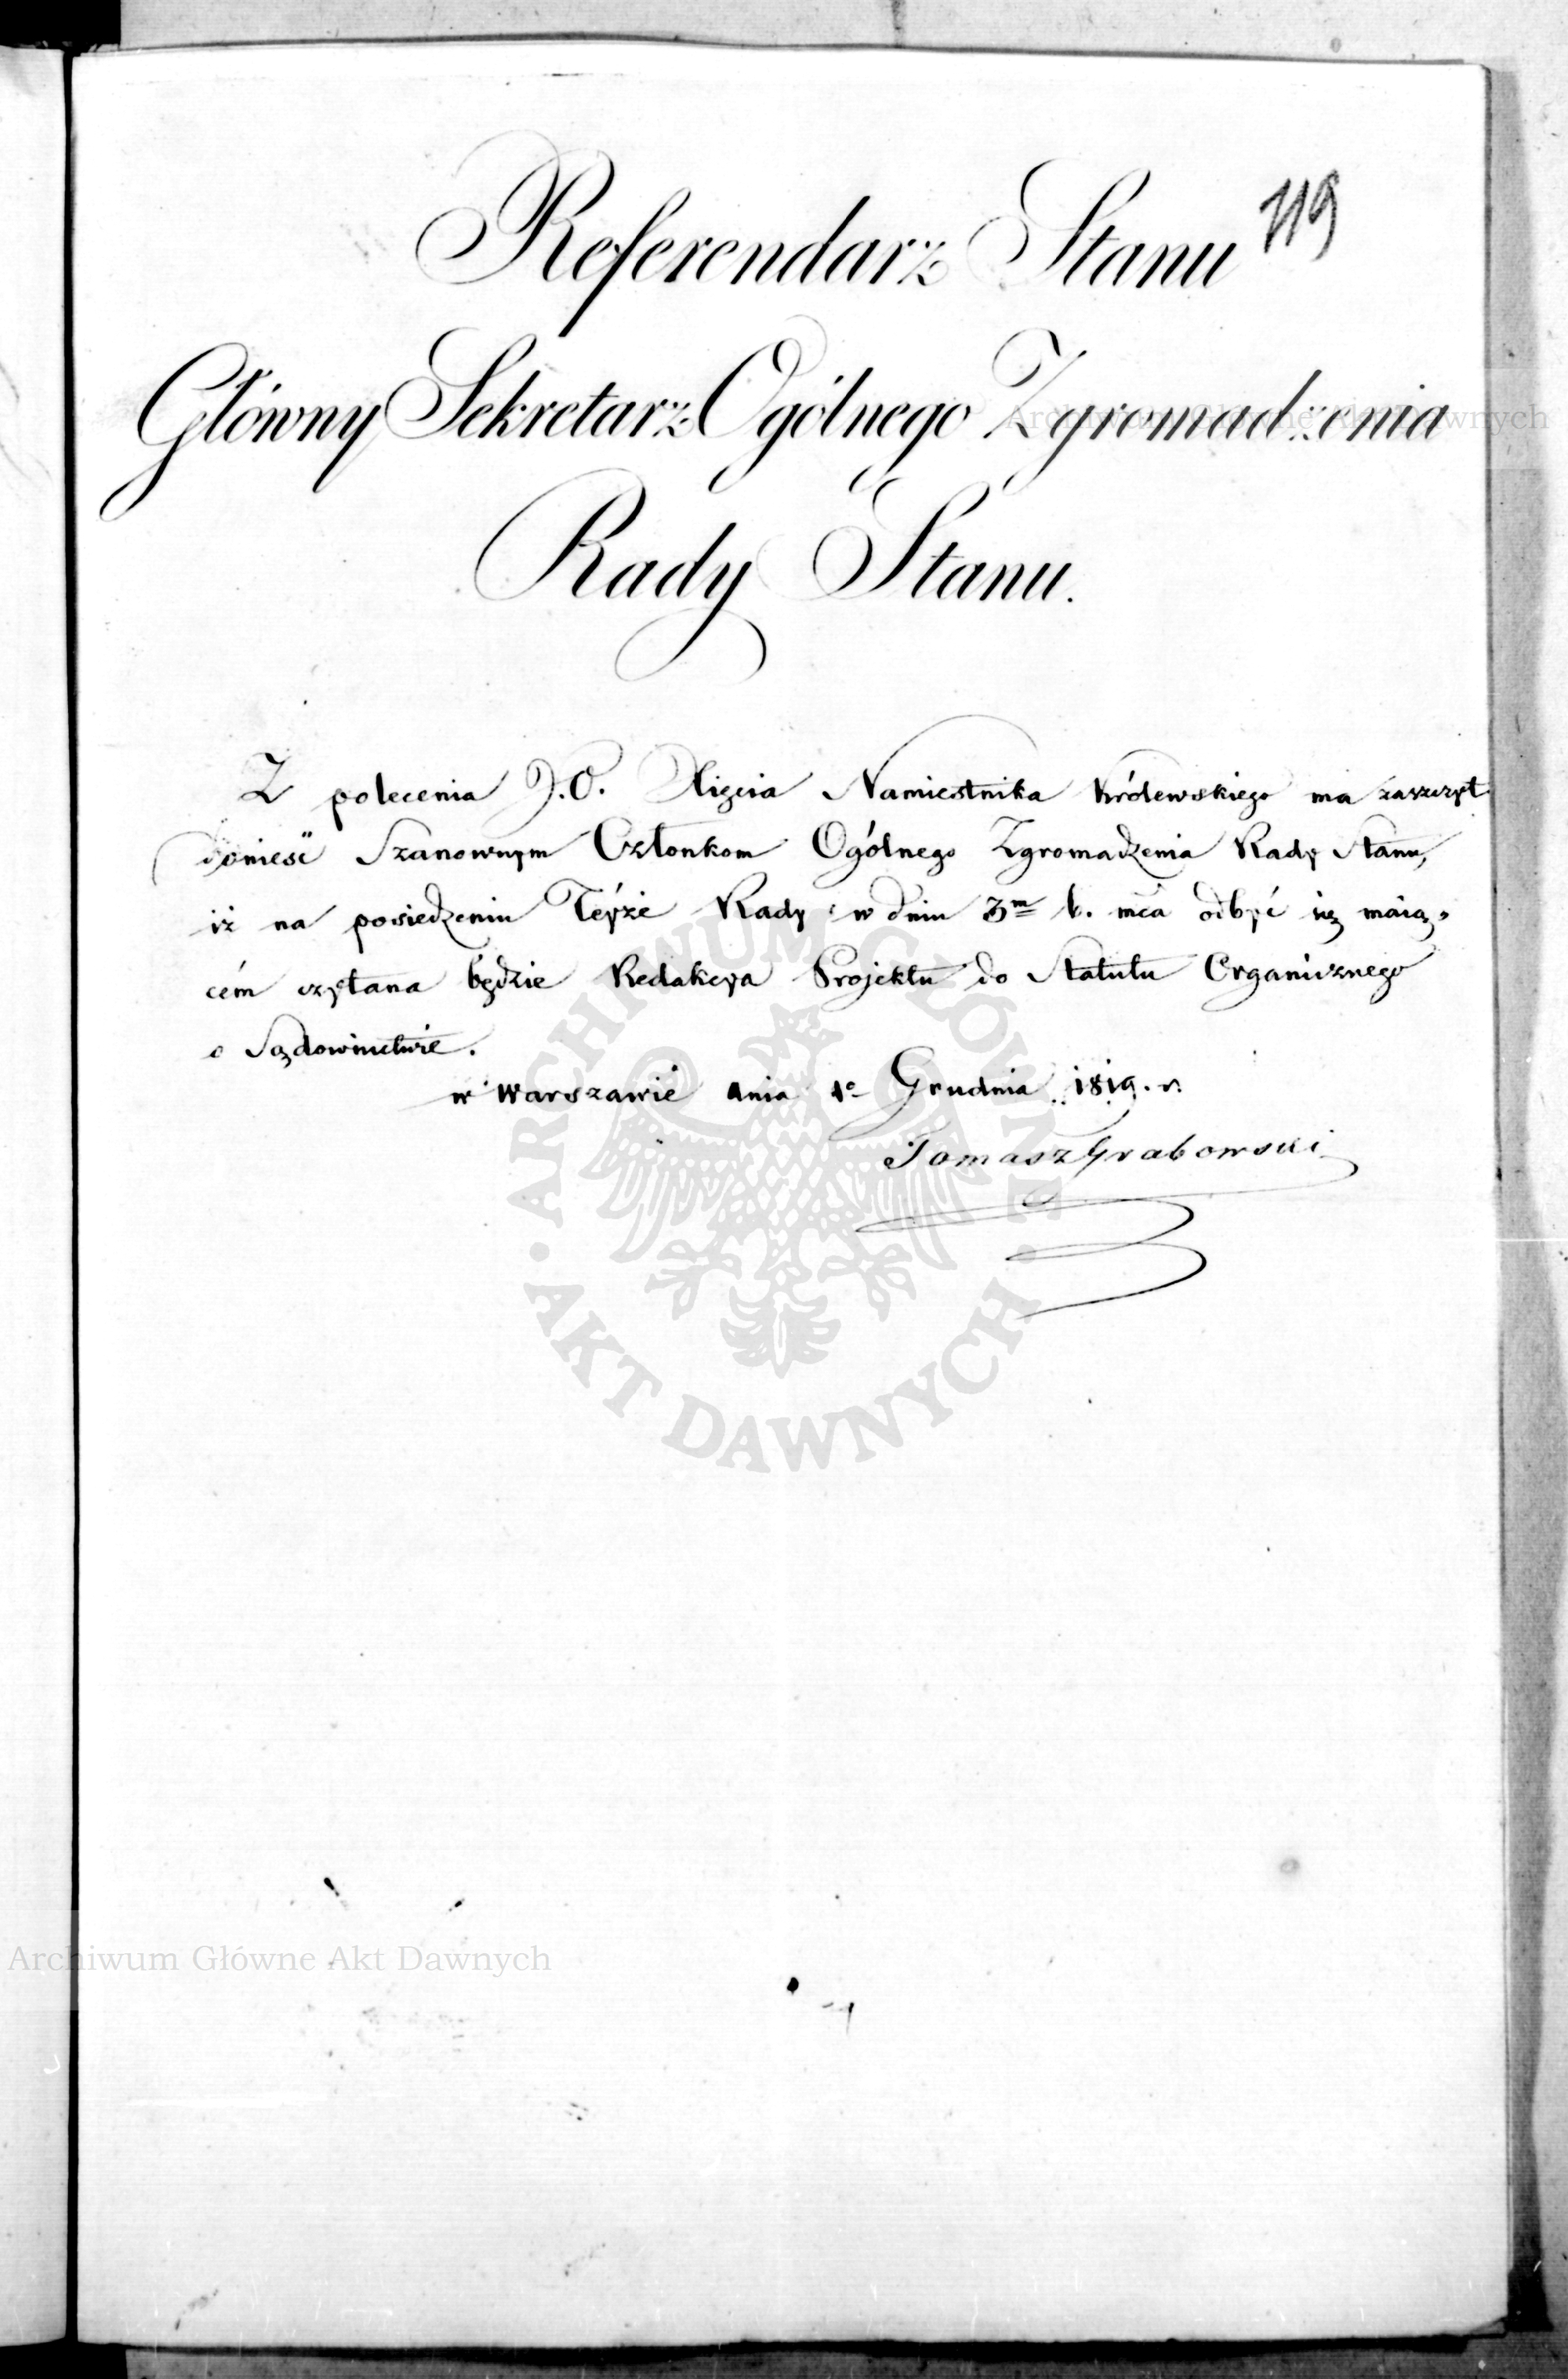 119
Referendarz Stanu
Główny Sekretarz Ogólnego Zgromadzenia
Rady Stanu.
Z polecenia J.O. Xięcia Namiestnika Królewskiego ma zaszczyt
donieść Szanownym Członkom Ogólnego Zgromadzenia Rady Stanu,
iż na posiedzeniu Téyże Rady w dniu 3m b. mca odbyć się maią„
cém czytana będzie Redakcya Projektu do Statutu Organicznego
o Sądownictwie.
w Warszawie dnia 1o Grudnia 1819. r.
Tomasz Grabowski
ARCHIWUM GŁÓWNE
AKT DAWNYCH
Archiwum Główne Akt Dawnych
Archiwum Główne Akt Dawnych